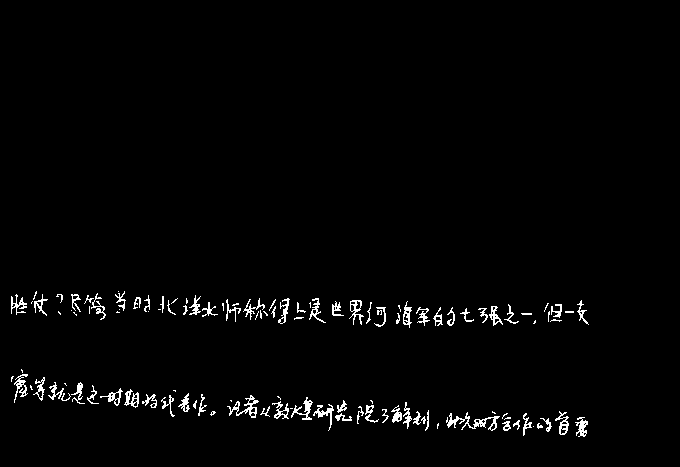 胜仗？尽管当时北洋水师称得上是世界海军的七强之一，但一支
窟等就是这一时期的代表作。记者从敦煌研究院了解到，此次双方合作的首要